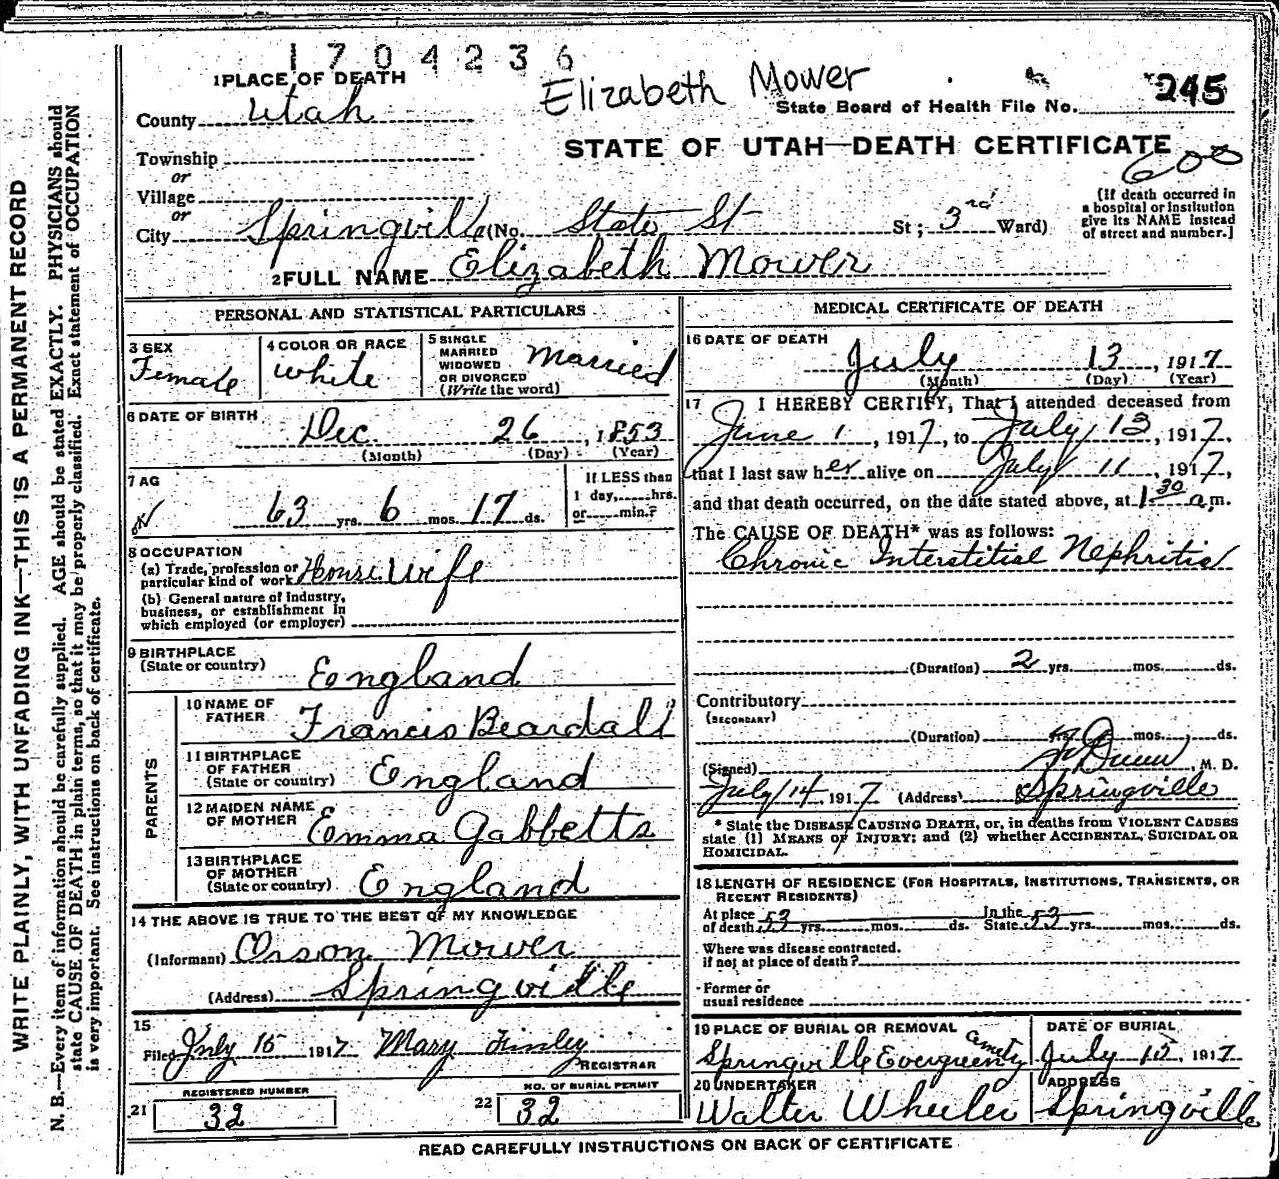 1704236
1 PLACE OF DEATH
Elizabeth Mower
County Utah
State Board of Health File No. 245
Township
or
STATE OF UTAH—DEATH CERTIFICATE
600
Village
or
(If death occurred in a hospital or institution give its NAME instead of street and number.]
City Springville (No. State St St; 3rd Ward)
2 FULL NAME Elizabeth Mower
PERSONAL AND STATISTICAL PARTICULARS
3 SEX
Female
4 COLOR OR RACE
White
5 SINGLE
MARRIED
WIDOWED
OR DIVORCED
(Write the word)
Married
6 DATE OF BIRTH
Dec 26, 1853
(Month) (Day) (Year)
7 AG
63 yrs. 6 mos. 17 ds.
If LESS than
1 day,......hrs.
or......min.?
8 OCCUPATION
(a) Trade, profession or
particular kind of work House Wife
(b) General nature of industry,
business, or establishment in
which employed (or employer)
9 BIRTHPLACE
(State or country)
England
PARENTS
10 NAME OF
FATHER
Francis Beardall
11 BIRTHPLACE
OF FATHER
(State or country)
England
12 MAIDEN NAME
OF MOTHER
Emma Gabbetts
13 BIRTHPLACE
OF MOTHER
(State or country)
England
14 THE ABOVE IS TRUE TO THE BEST OF MY KNOWLEDGE
(Informant) Orson Mower
(Address) Springville
15
Filed July 15 1917 Mary Finley
REGISTRAR
REGISTERED NUMBER
21 32
NO. OF BURIAL PERMIT
22 32
MEDICAL CERTIFICATE OF DEATH
16 DATE OF DEATH
July 13, 1917
(Month) (Day) (Year)
17 I HEREBY CERTIFY, That I attended deceased from
June 1, 1917, to July 13, 1917,
that I last saw her alive on July 11, 1917,
and that death occurred, on the date stated above, at 1 30 a m.
The CAUSE OF DEATH* was as follows:
Chronic Interstitial Nephritis
(Duration) 2 yrs. mos. ds.
Contributory
(SECONDARY)
(Duration) mos. ds.
(Signed) Dunn M. D.
July 14 1917 (Address) Springville
* State the DISEASE CAUSING DEATH, or, in deaths from VIOLENT CAUSES
state (1) MEANS OF INJURY; and (2) whether ACCIDENTAL, SUICIDAL OR
HOMICIDAL.
18 LENGTH OF RESIDENCE (FOR HOSPITALS, INSTITUTIONS, TRANSIENTS, OR
RECENT RESIDENTS)
At place
of death 53 yrs. mos. ds.
In the
State 53 yrs. mos. ds.
Where was disease contracted.
if not at place of death?
Former or
usual residence
19 PLACE OF BURIAL OR REMOVAL
Springville Evergreen
DATE OF BURIAL
July 15, 1917
20 UNDERTAKER
Walter Wheeler
ADDRESS
Springville
READ CAREFULLY INSTRUCTIONS ON BACK OF CERTIFICATE
WRITE PLAINLY, WITH UNFADING INK—THIS IS A PERMANENT RECORD
N. B.—Every item of information should be carefully supplied. AGE should be stated EXACTLY. PHYSICIANS should
state CAUSE OF DEATH in plain terms, so that it may be properly classified. Exact statement of OCCUPATION
is very important. See instructions on back of certificate.